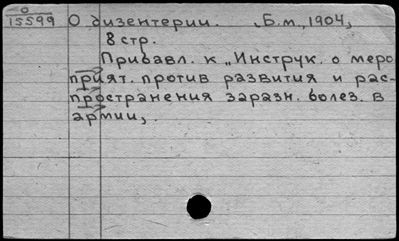 О
15599 О дизентерии. Б.м., 1904,
8 стр.
Прибавл. к „Инструк. о меро
прият. против развития и рас-
пространения заразн. болез. в
армии„.